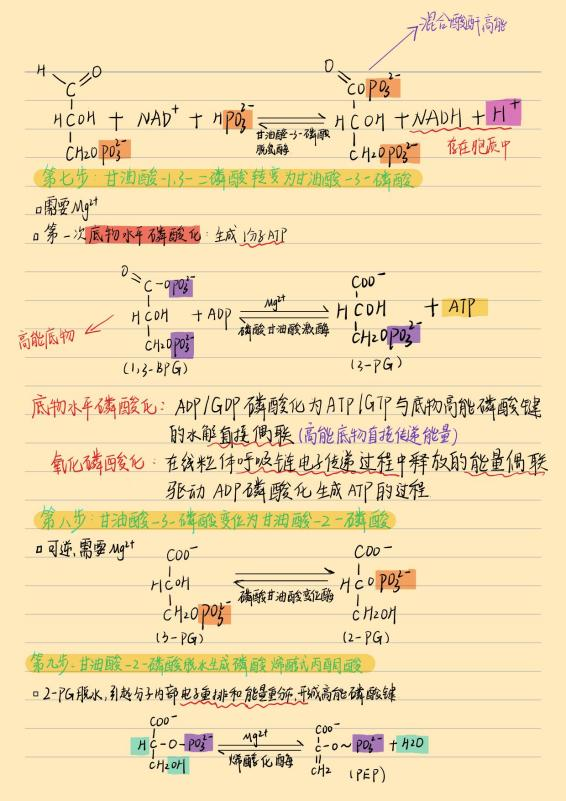 混合酸酐高能
H O O
C COPO₃²⁻
HCOH + NAD⁺ + HPO₃²⁻ ⇌ HCOH + NADH + H⁺
甘油醛-3-磷酸
脱氢酶
存在胞质中
CH₂OPO₃²⁻ CH₂OPO₃²⁻
第七步:甘油酸-1,3-二磷酸转变为甘油酸-3-磷酸
需要Mg²⁺
第一次底物水平磷酸化:生成1分子ATP
O COO⁻
C-OPO₃²⁻
HCOH + ADP ⇌ HCOH + ATP
Mg²⁺
磷酸甘油酸激酶
高能底物
CH₂OPO₃²⁻ CH₂OPO₃²⁻
(1,3-BPG) (3-PG)
底物水平磷酸化:ADP/GDP磷酸化为ATP/GTP与底物高能磷酸键
的水解直接偶联(高能底物直接传递能量)
氧化磷酸化:在线粒体呼吸链电子传递过程中释放的能量偶联
驱动ADP磷酸化生成ATP的过程
第八步:甘油酸-3-磷酸变位为甘油酸-2-磷酸
可逆,需要Mg²⁺
COO⁻ COO⁻
HCOH ⇌ HCOPO₃²⁻
磷酸甘油酸变位酶
CH₂OPO₃²⁻ CH₂OH
(3-PG) (2-PG)
第九步:甘油酸-2-磷酸脱水生成磷酸烯醇式丙酮酸
2-PG脱水,引起分子内部电子重排和能量重分布,形成高能磷酸键
COO⁻ COO⁻
HC-O-PO₃²⁻ ⇌ C-O~PO₃²⁻ + H₂O
Mg²⁺
烯醇化酶
CH₂OH CH₂ (PEP)